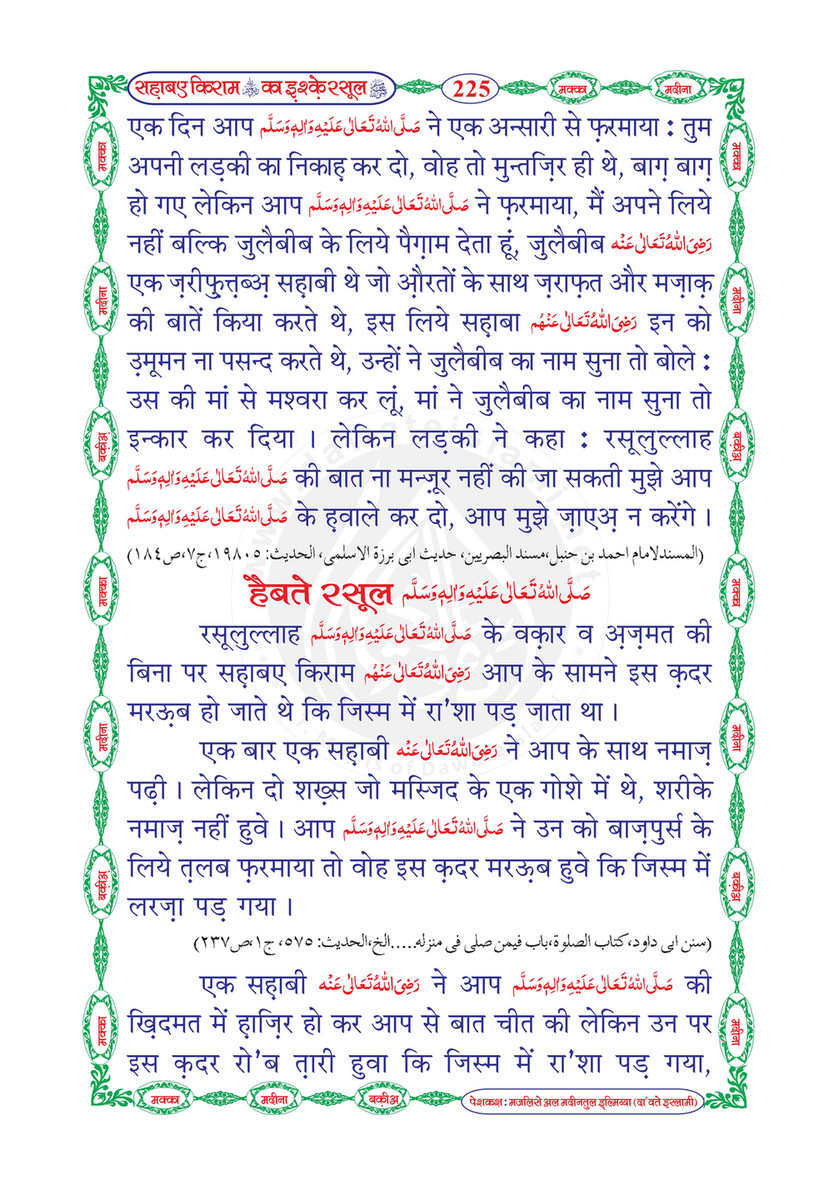 सह़ाबए किराम का इ़श्क़े रसूल
225
मक्का
मदीना
एक दिन आप صَلَّى اللهُ تَعَالٰى عَلَيْهِ وَاٰلِهٖ وَسَلَّم ने एक अन्सारी से फ़रमाया : तुम
अपनी लड़की का निकाह़ कर दो, वोह तो मुन्तज़िर ही थे, बाग़ बाग़
हो गए लेकिन आप صَلَّى اللهُ تَعَالٰى عَلَيْهِ وَاٰلِهٖ وَسَلَّم ने फ़रमाया, मैं अपने लिये
नहीं बल्कि जुलैबीब के लिये पैग़ाम देता हूं, जुलैबीब رَضِىَ اللهُ تَعَالٰى عَنْه
एक ज़रीफुत़्त़ब्अ़ सह़ाबी थे जो औ़रतों के साथ ज़राफ़त और मज़ाक़
की बातें किया करते थे, इस लिये सह़ाबा رَضِىَ اللهُ تَعَالٰى عَنْهُم इन को
उ़मूमन ना पसन्द करते थे, उन्हों ने जुलैबीब का नाम सुना तो बोले :
उस की मां से मश्वरा कर लूं, मां ने जुलैबीब का नाम सुना तो
इन्कार कर दिया । लेकिन लड़की ने कहा : रसूलुल्लाह
صَلَّى اللهُ تَعَالٰى عَلَيْهِ وَاٰلِهٖ وَسَلَّم की बात ना मन्ज़ूर नहीं की जा सकती मुझे आप
صَلَّى اللهُ تَعَالٰى عَلَيْهِ وَاٰلِهٖ وَسَلَّم के ह़वाले कर दो, आप मुझे ज़ाएअ़ न करेंगे ।
(المسندلامام احمد بن حنبل،مسند البصریین، حدیث ابی برزة الاسلمی، الحدیث: ١٩٨٠٥، ج٧،ص١٨٤)
हैबते रसूल صَلَّى اللهُ تَعَالٰى عَلَيْهِ وَاٰلِهٖ وَسَلَّم
रसूलुल्लाह صَلَّى اللهُ تَعَالٰى عَلَيْهِ وَاٰلِهٖ وَسَلَّم के वक़ार व अ़ज़मत की
बिना पर सह़ाबए किराम رَضِىَ اللهُ تَعَالٰى عَنْهُم आप के सामने इस क़दर
मरऊ़ब हो जाते थे कि जिस्म में रा'शा पड़ जाता था ।
एक बार एक सह़ाबी رَضِىَ اللهُ تَعَالٰى عَنْه ने आप के साथ नमाज़
पढ़ी । लेकिन दो शख़्स जो मस्जिद के एक गोशे में थे, शरीके
नमाज़ नहीं हुवे । आप صَلَّى اللهُ تَعَالٰى عَلَيْهِ وَاٰلِهٖ وَسَلَّم ने उन को बाज़पुर्स के
लिये त़लब फ़रमाया तो वोह इस क़दर मरऊ़ब हुवे कि जिस्म में
लरज़ा पड़ गया ।
(سنن ابی داود، کتاب الصلوة،باب فیمن صلی فی منزله.....الخ،الحدیث: ٥٧٥، ج١،ص٢٣٧)
एक सह़ाबी رَضِىَ اللهُ تَعَالٰى عَنْه ने आप صَلَّى اللهُ تَعَالٰى عَلَيْهِ وَاٰلِهٖ وَسَلَّم की
ख़िदमत में ह़ाज़िर हो कर आप से बात चीत की लेकिन उन पर
इस क़दर रो'ब त़ारी हुवा कि जिस्म में रा'शा पड़ गया,
मक्का
मदीना
बक़ीअ़
मक्का
मदीना
बक़ीअ़
मक्का
मक्का
मदीना
बक़ीअ़
मक्का
मदीना
बक़ीअ़
मदीना
मक्का
मदीना
बक़ीअ़
पेशकश : मजलिसे अल मदीनतुल इ़ल्मिय्या (दा'वते इस्लामी)